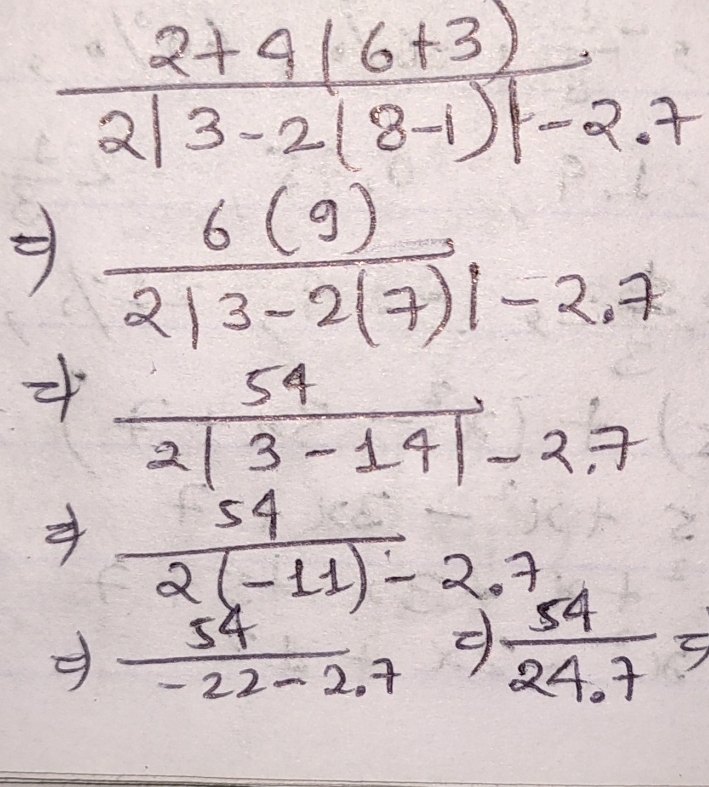 2+4(6+3)
2|3-2(8-1)|-2.7
⇒ 6(9)
2|3-2(7)|-2.7
⇒ 54
2|3-14|-2.7
⇒ 54
2(-11)-2.7
⇒ 54 ⇒ 54 ⇒
-22-2.7 24.7